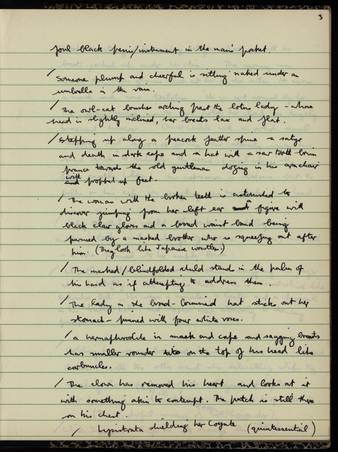 3
pool black penis/instrument in the man's pocket.
/ Someone plump and cheerful is sitting naked under a
umbrella in the rain.
/ The owl-cat touches arching past the lotus lady - whose
head is slightly inclined, her breasts lax and flat.
/ Stepping up along a peacock feather spine - a satyr
and death in dark cape and a hat with a saw tooth brim
prance towards the old gentleman dozing in his armchair
with propped up feet.
/ The woman with the broken teeth is astounded to
discover jumping from her left ear a figure with
black clear gloves and a broad waist band being
pursued by a masked brother who is squeezing out after
him (They look like Japanese wrestlers)
/ The masked/blindfolded child stands in the palm of
his hand as if attempting to address them.
/ The lady in the broad-brimmed hat sticks out her
stomach - pinned with four white roses.
/ a hermaphrodite in mask and cape and sagging breasts
has smaller rounder on the top of his head like
carbuncles.
/ The clown has removed his heart and looks at it
with something akin to contempt. The patch is still there
on his chest.
/ Lysistrata shielding her (quintessential)